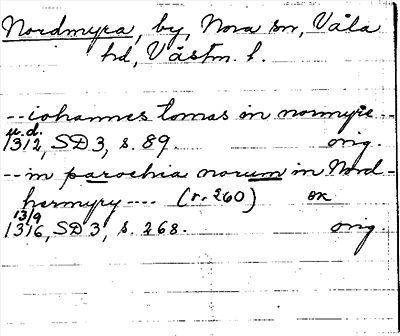 Nordmyra, by, Nora sn, Våla
hd, Västm. l.
-- iohannes tomas in normyre --
u.d.
1312, SD 3, s. 89. orig.
-- in parochia norum in Nord-
hermyry ---- (r. 260) ox
13/9
1316, SD 3, s. 268. orig.